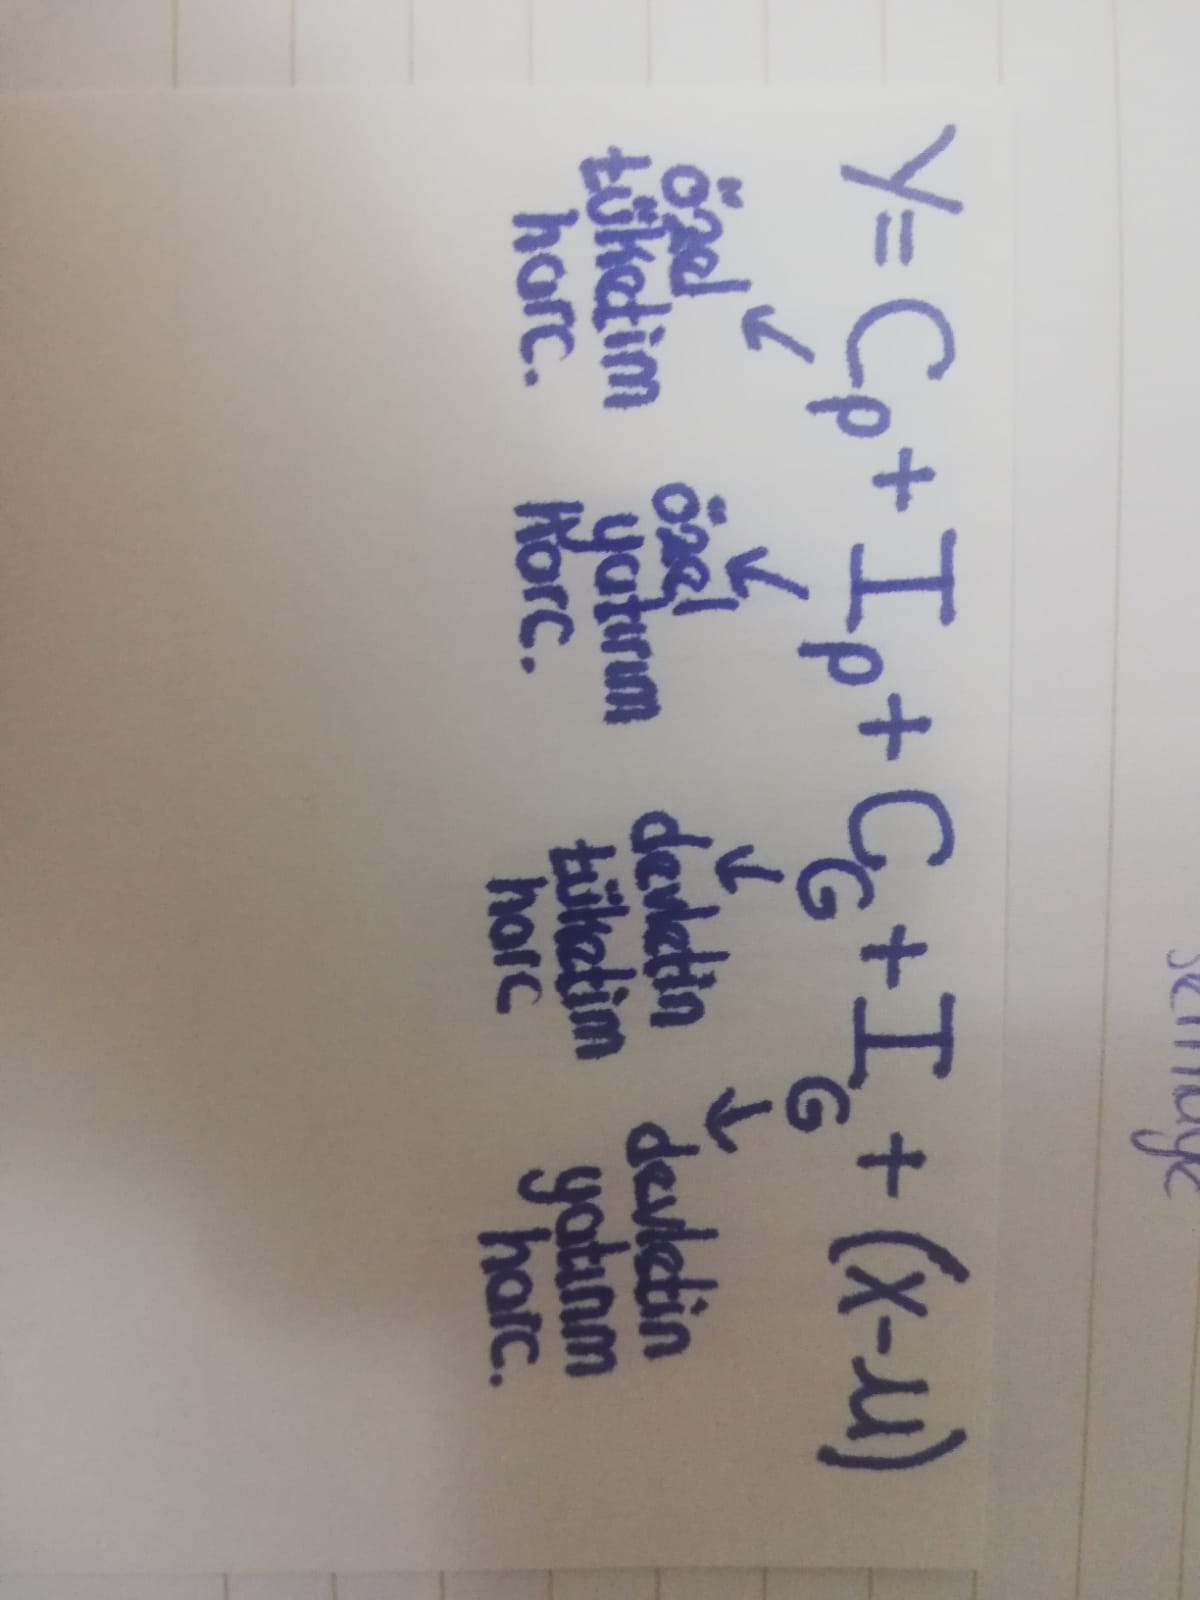 sermaye
Y = Cp + Ip + CG + IG + (X-M)
özel tüketim harc.
özel yatırım harc.
devletin tüketim harc
devletin yatırım harc.